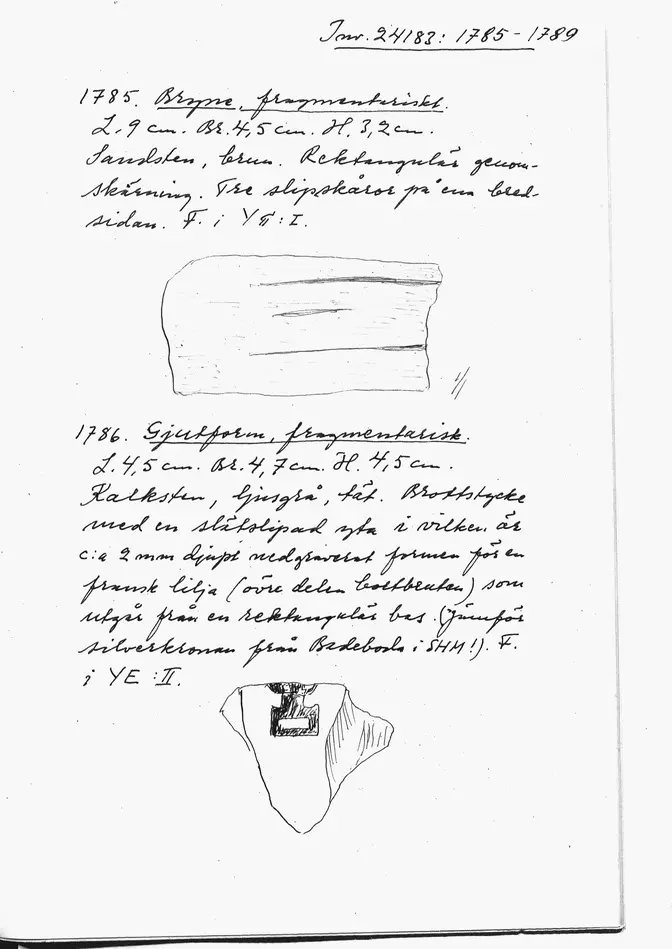 Inv. 24183: 1785-1789
1785. Bryne, fragmentariskt.
L. 9 cm. Br. 4,5 cm. H. 3,2 cm.
Sandsten, brun. Rektangulär genom-
skärning. Tre slipskåror på ena bred-
sidan. F. i YÖ: I.
1/1
1786. Gjutform, fragmentarisk.
L. 4,5 cm. Br. 4,7 cm. H. 4,5 cm.
Kalksten, ljusgrå, tät. Brottstycke
med en slätslipad yta i vilken är
c:a 2 mm djupt nedgraverat formen för en
fransk lilja (övre delen bortbruten) som
utgår från en rektangulär bas. (Jämför
silverkronan från Badeboda i SHM!). F.
i YE : II.